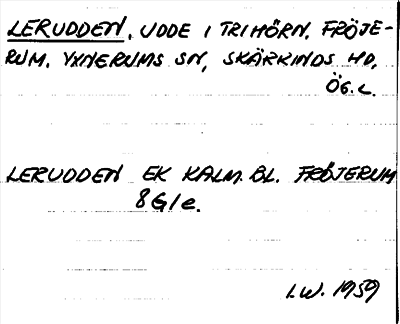 LERUDDEN, UDDE I TRIHÖRN, FRÖJE-
RUM, YXNERUMS SN, SKÄRKINDS HD,
ÖG. L.
LERUDDEN EK KALM. BL. FRÖJERUM
8G1e.
I.W. 1959